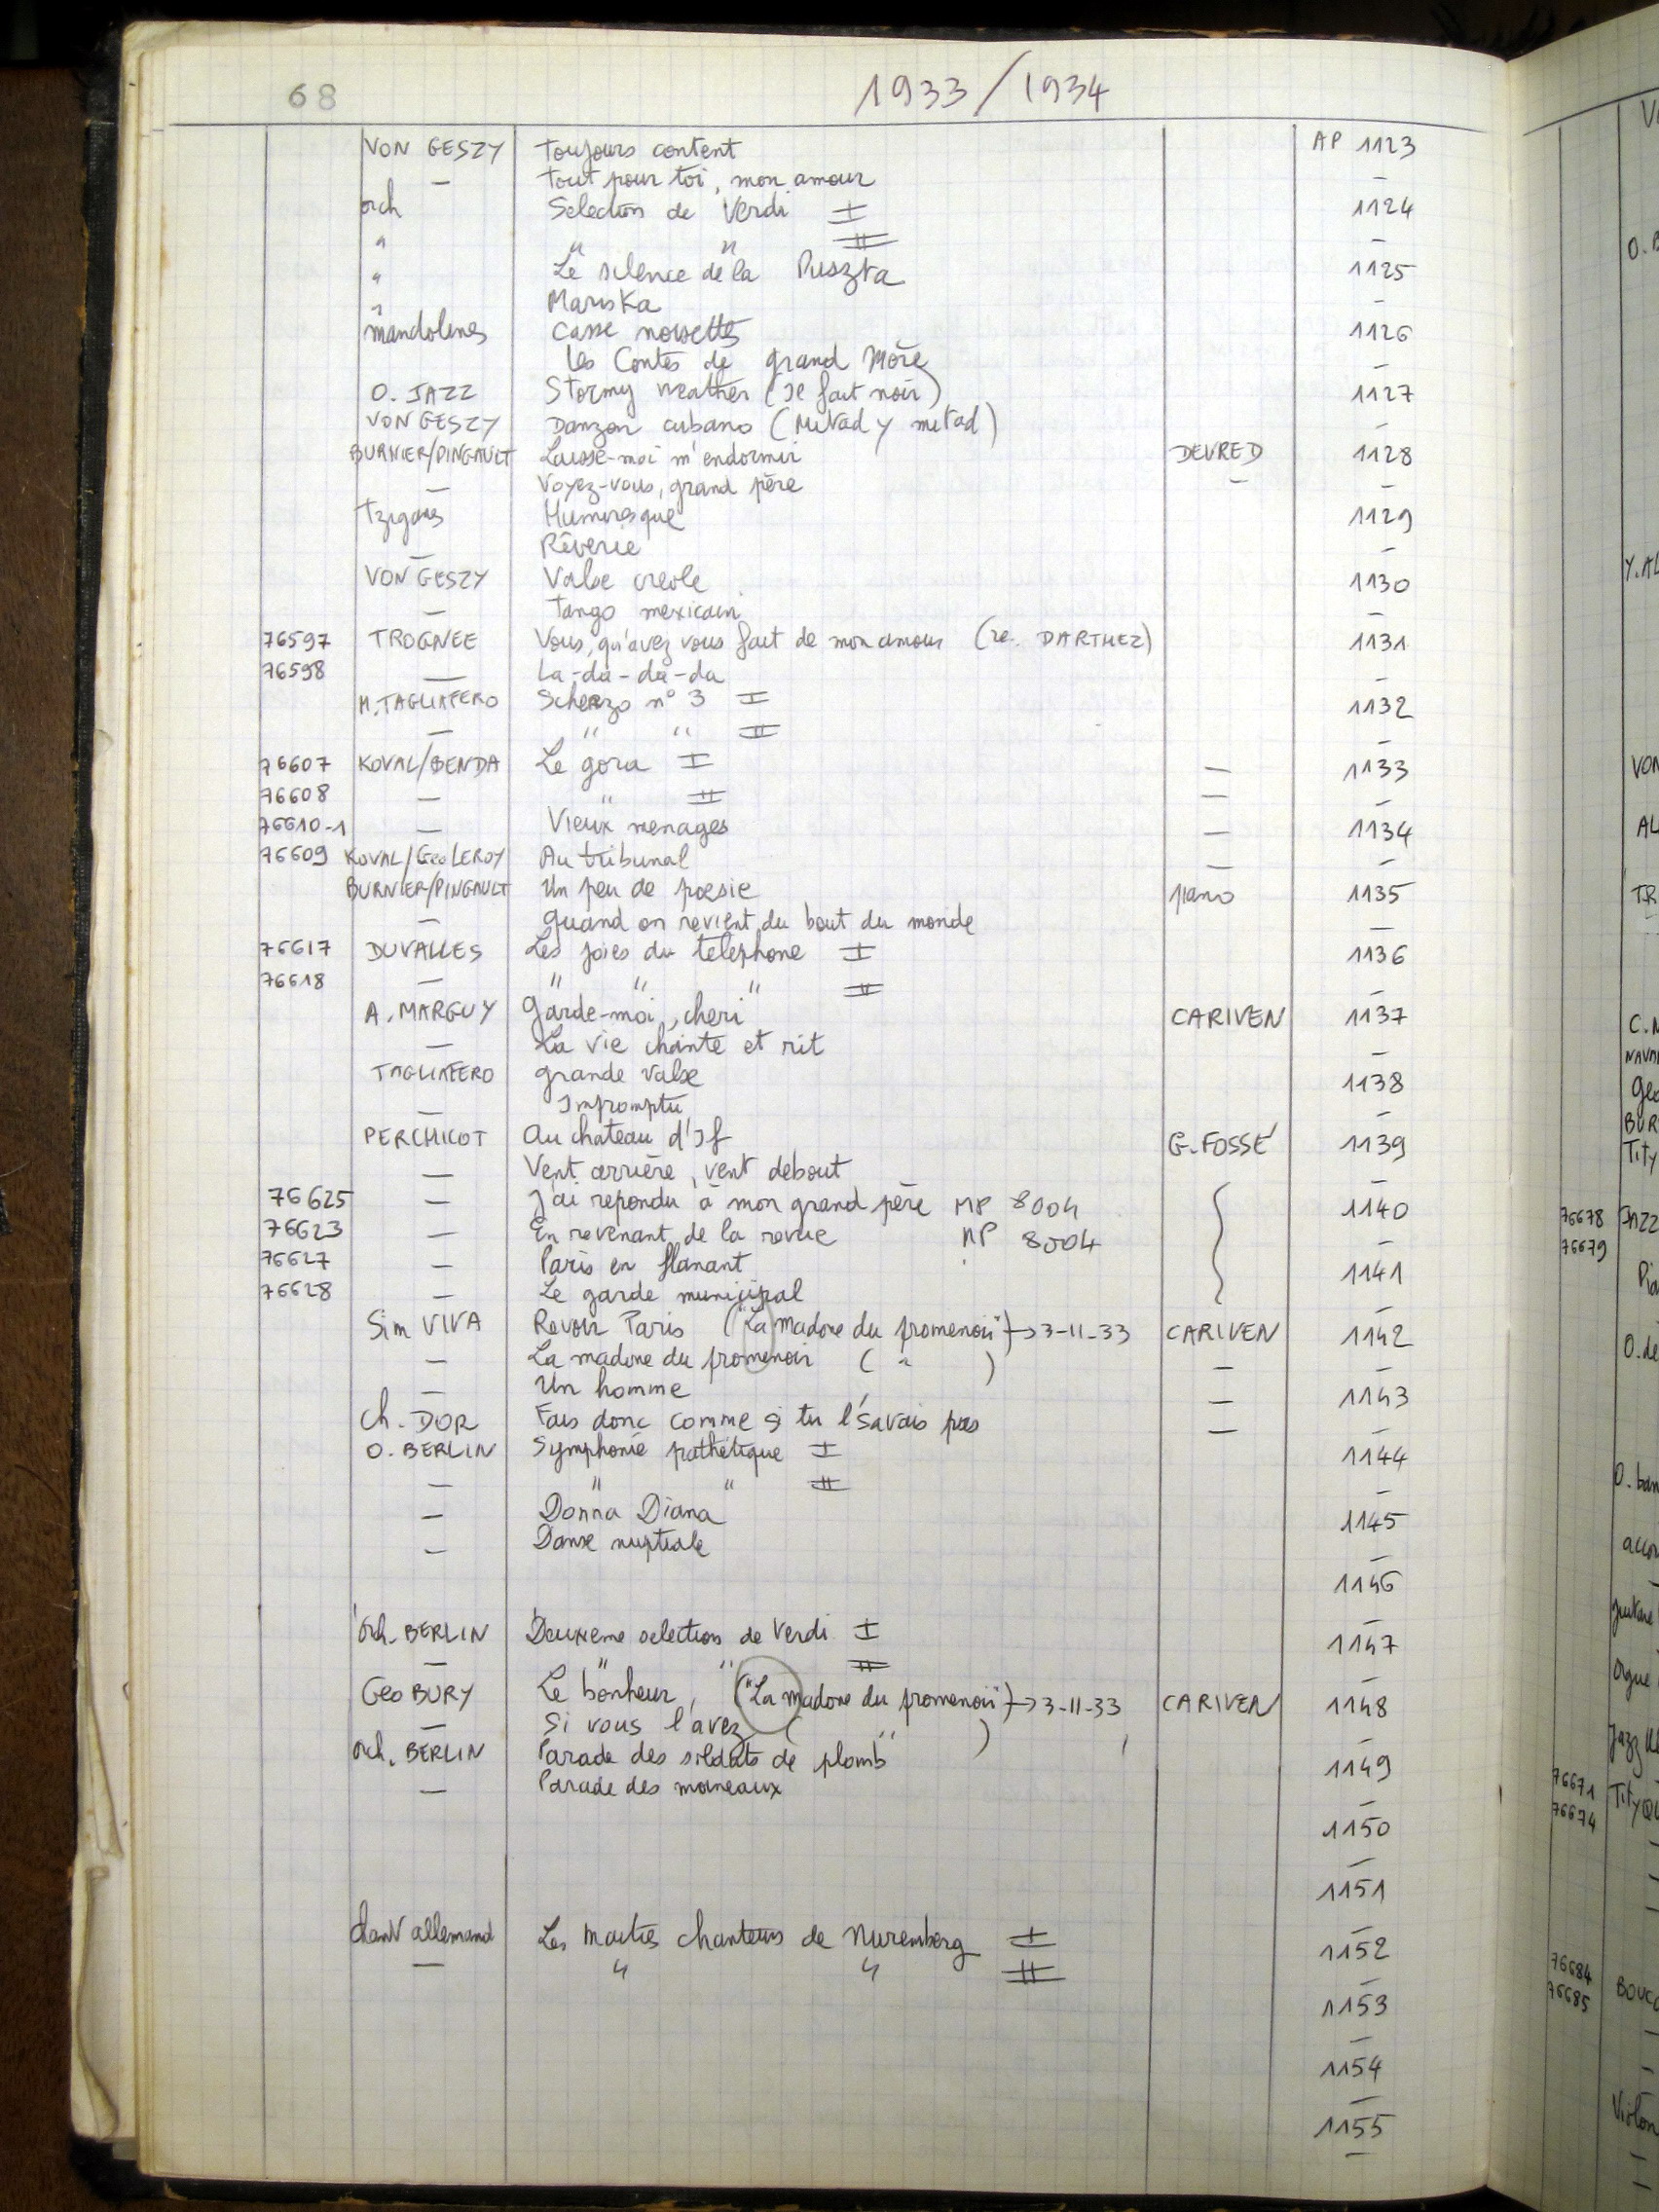 68 1933/1934
VON GESZY Toujours content AP 1123
— Tout pour toi, mon amour —
orch Selection de Verdi I 1124
" " " II —
" Le silence de la Puszta 1125
" Mariska —
mandolines Casse noisettes 1126
Les Contes de grand Mère —
O. JAZZ Stormy weather (Il fait noir) 1127
VON GESZY Danzon cubano (Mitad y mitad) —
BURNIER/PINGAULT Laisse-moi m'endormir DEVRED 1128
— Voyez-vous, grand père — —
Tziganes Humoresque 1129
— Rêverie —
VON GESZY Valse creole 1130
— Tango mexicain —
76597 TROGNEE Vous, qu'avez vous fait de mon amour (re. DARTHEZ) 1131
76598 — La-da-da-da —
M. TAGLIAFERO Scherzo n° 3 I 1132
— " " II —
76607 KOVAL/BENDA Le gora I — 1133
76608 — " II — —
76610-1 — Vieux menages — 1134
76609 KOVAL/Geo LEROY Au tribunal — —
BURNIER/PINGAULT Un peu de poesie piano 1135
— Quand on revient du bout du monde —
76617 DUVALLES Les joies du telephone I 1136
76618 — " " " II —
A. MARGUY Garde-moi, cheri CARIVEN 1137
— La vie chante et rit —
TAGLIAFERO Grande valse 1138
— Impromptu —
PERCHICOT Au chateau d'If G. FOSSÉ 1139
— Vent arrière, vent debout —
76625 — J'ai repondu à mon grand père MP 8004 1140
76623 — En revenant de la revue MP 8004 —
76627 — Paris en flanant 1141
76628 — Le garde municipal —
Sim VIVA Revoir Paris ("La madone du promenoir") → 3-11-33 CARIVEN 1142
— La madone du promenoir ( " ) — —
— Un homme — 1143
Ch. DOR Fais donc comme si tu l'savais pas — —
O. BERLIN Symphonie pathétique I 1144
— " " II —
— Donna Diana 1145
— Danse nuptiale —
1146
—
Orch. BERLIN Deuxieme selection de Verdi I 1147
— " " II —
Geo BURY Le bonheur, ("La madone du promenoir") → 3-11-33 CARIVEN 1148
— Si vous l'avez ( " ) —
Orch. BERLIN Parade des soldats de plomb 1149
— Parade des moineaux —
1150
—
1151
—
Chant allemand Les maitres chanteurs de Nuremberg I 1152
— " " II —
1153
—
1154
—
1155
—
O. B
Y. AL
VON
AL
TR
C. M
NAVA
Geo
BUR
Tity
76678 JAZZ
76679
Pia
O. de
O. ban
acco
guitare
orgue
Jazz
76671 Tity QU
76674
76684
76685 BOUCO
Violon